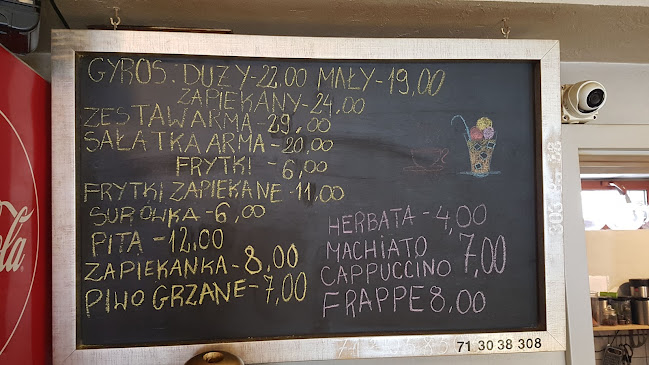 GYROS: DUŻY-22,00 MAŁY-19,00
ZAPIEKANY-24,00
ZESTAW ARMA-29,00
SAŁATKA ARMA-20,00
FRYTKI - 6,00
FRYTKI ZAPIEKANE-11,00
SURÓWKA-6,00
PITA-12,00
ZAPIEKANKA-8,00
PIWO GRZANE-7,00
HERBATA-4,00
MACHIATO
CAPPUCCINO 7,00
FRAPPE 8,00
71 30 38 308